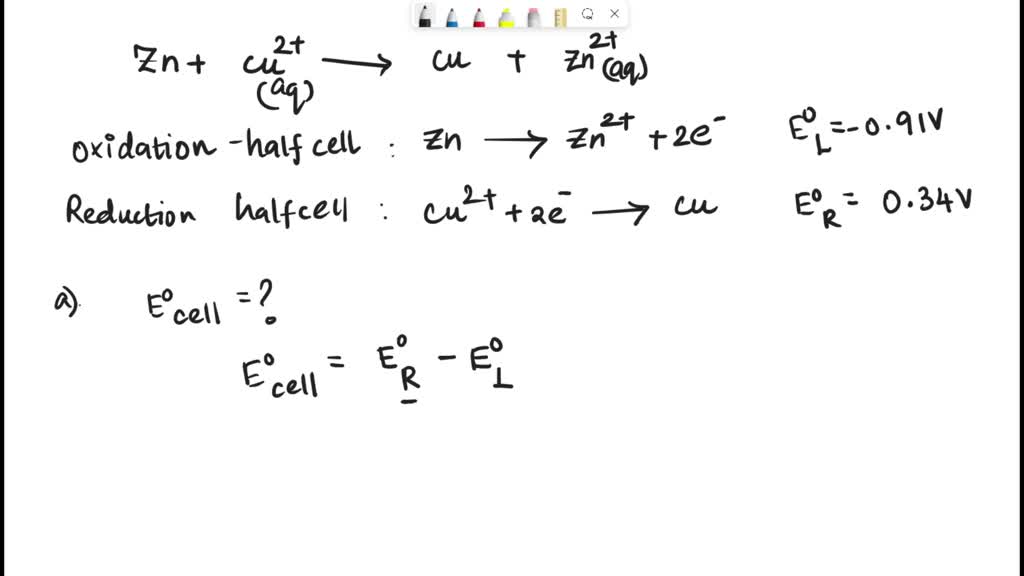 Zn + Cu²⁺(aq) ⟶ Cu + Zn²⁺(aq)
Oxidation - half cell : Zn ⟶ Zn²⁺ + 2e⁻ E⁰L = -0.91V
Reduction halfcell : Cu²⁺ + 2e⁻ ⟶ Cu E⁰R = 0.34V
a). E⁰cell = ?
E⁰cell = E⁰R - E⁰L